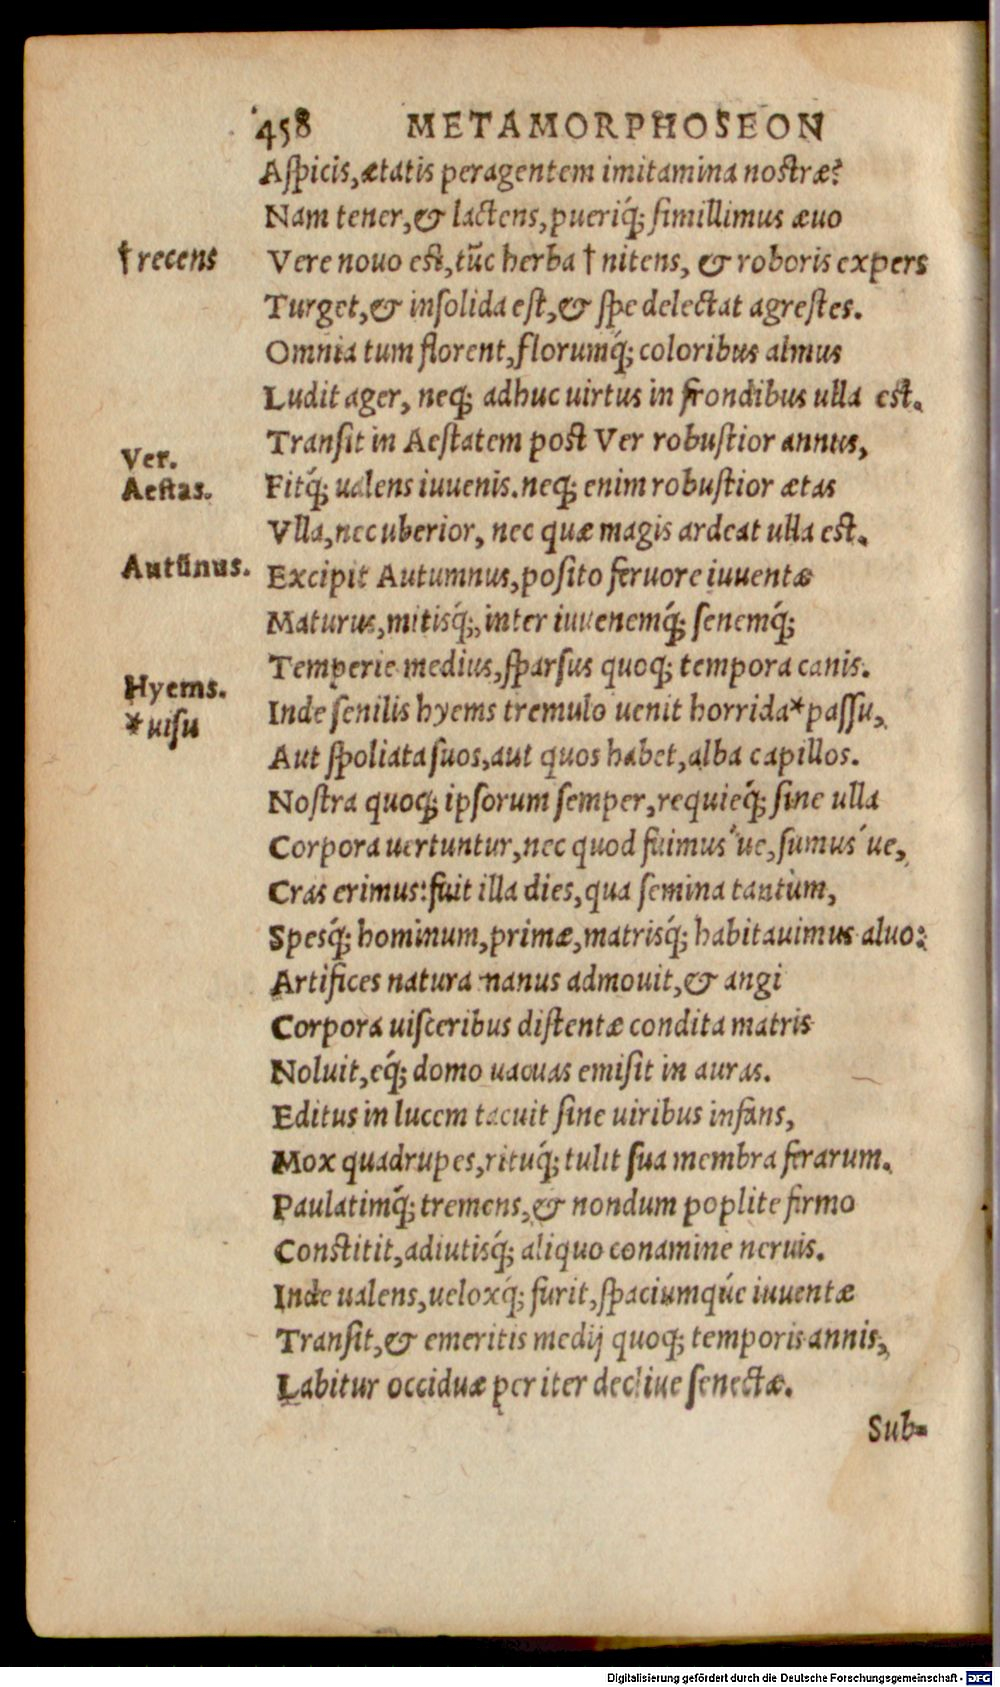 458 METAMORPHOSEON
Aspicis, ætatis peragentem imitamina nostræ?
Nam tener, & lactens, pueriq́; simillimus æuo
† recens
Vere nouo est, tũc herba † nitens, & roboris expers
Turget, & insolida est, & spe delectat agrestes.
Omnia tum florent, florumq́; coloribus almus
Ludit ager, neq; adhuc uirtus in frondibus ulla est.
Transit in Aestatem post Ver robustior annus,
Ver.
Aestas.
Fitq́; ualens iuuenis. neq; enim robustior ætas
Vlla, nec uberior, nec quæ magis ardeat ulla est.
Autũnus.
Excipit Autumnus, posito feruore iuuentæ
Maturus, mitisq́;, inter iuuenemq́; senemq́;
Temperie medius, sparsus quoq; tempora canis.
Hyems.
*uisu
Inde senilis hyems tremulo uenit horrida* passu,
Aut spoliata suos, aut quos habet, alba capillos.
Nostra quoq; ipsorum semper, requieq́; sine ulla
Corpora uertuntur, nec quod fuimus´ue, sumus´ue,
Cras erimus: fuit illa dies, qua semina tantùm,
Spesq́; hominum, primæ, matrisq́; habitauimus aluo:
Artifices natura manus admouit, & angi
Corpora uisceribus distentæ condita matris
Noluit, eq́; domo uacuas emisit in auras.
Editus in lucem iacuit sine uiribus infans,
Mox quadrupes, rituq́; tulit sua membra ferarum.
Paulatimq́; tremens, & nondum poplite firmo
Constitit, adiutisq́; aliquo conamine neruis.
Inde ualens, ueloxq́; furit, spaciumqúe iuuentæ
Transit, & emeritis medij quoq; temporis annis,
Labitur occiduæ per iter decliue senectæ.
Sub-
Digitalisierung gefördert durch die Deutsche Forschungsgemeinschaft - DFG